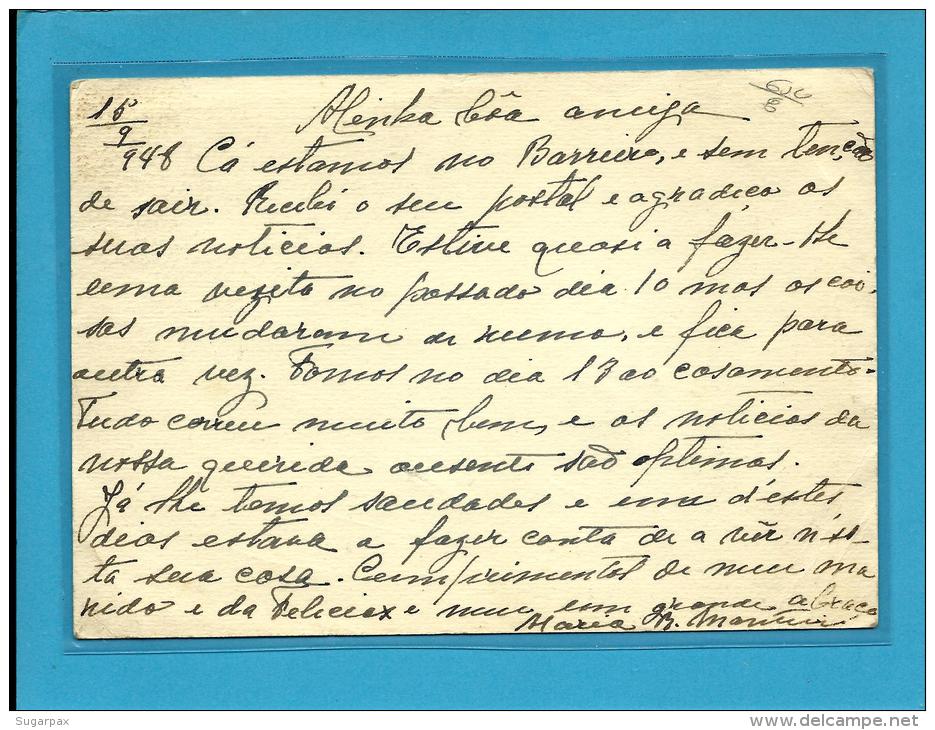 15
9
948
Minha bôa amiga
Cá estamos no Barreiro, e sem tenção
de sair. Recibi o seu postal e agradeço as
suas noticias. Estive quasi a fazer-lhe
uma vezita no passado dia 10 mas as coi-
sas mudaram de rumo, e fica para
outra vez. Fomos no dia 13 ao casamento.
Tudo correu muito bem, e as noticias da
nossa querida ausente são optimas.
Já lhe temos saudades e um d'estes
dias estava a fazer conta de a vêr n'es-
ta sua casa. Cumprimentos de meu ma
rido e da Felicia e meu um grande abraço
Maria B.
Sugarpax
www.delcampe.net